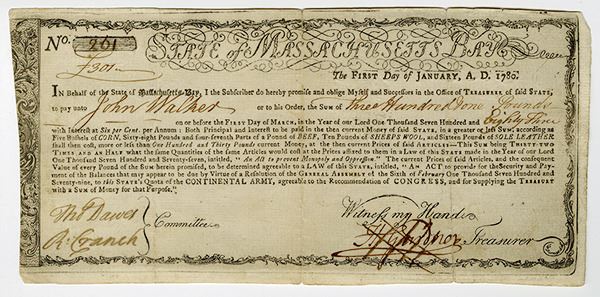 No. 261
STATE of MASSACHUSETTS BAY.
£301
The FIRST Day of JANUARY, A. D. 1780.
IN Behalf of the State of Massachusetts-Bay, I the Subscriber do hereby promise and oblige Myself and Successors in the Office of TREASURER of said STATE,
to pay unto John Walker or to his Order, the Sum of three Hundred & one Pounds
on or before the FIRST Day of MARCH, in the Year of our Lord One Thousand Seven Hundred and Eighty Three
with Interest at Six per Cent. per Annum: Both Principal and Interest to be paid in the then current Money of said STATE, in a greater or less SUM, according as
Five Bushels of CORN, Sixty-eight Pounds and four-seventh Parts of a Pound of BEEF, Ten Pounds of SHEEPS WOOL, and Sixteen Pounds of SOLE LEATHER
shall then cost, more or less than One Hundred and Thirty Pounds current Money, at the then current Prices of said ARTICLES—This SUM being THIRTY-TWO
TIMES and AN HALF what the same Quantities of the same Articles would cost at the Prices affixed to them in a LAW of this STATE made in the Year of our Lord
One Thousand Seven Hundred and Seventy-seven, intitled, "An Act to prevent Monopoly and Oppression." The current Prices of said Articles, and the consequent
Value of every Pound of the Sum herein promised, to be determined agreeable to a LAW of this STATE, intitled, "AN ACT to provide for the Security and Pay-
ment of the Balances that may appear to be due by Virtue of a Resolution of the GENERAL ASSEMBLY of the Sixth of February One Thousand Seven Hundred and
Seventy-nine, to this STATE'S Quota of the CONTINENTAL ARMY, agreeable to the Recommendation of CONGRESS, and for Supplying the TREASURY
with a SUM of Money for that Purpose."
Witness my Hand
Tho Dawes
R. Cranch
Committee.
H Gardner Treasurer